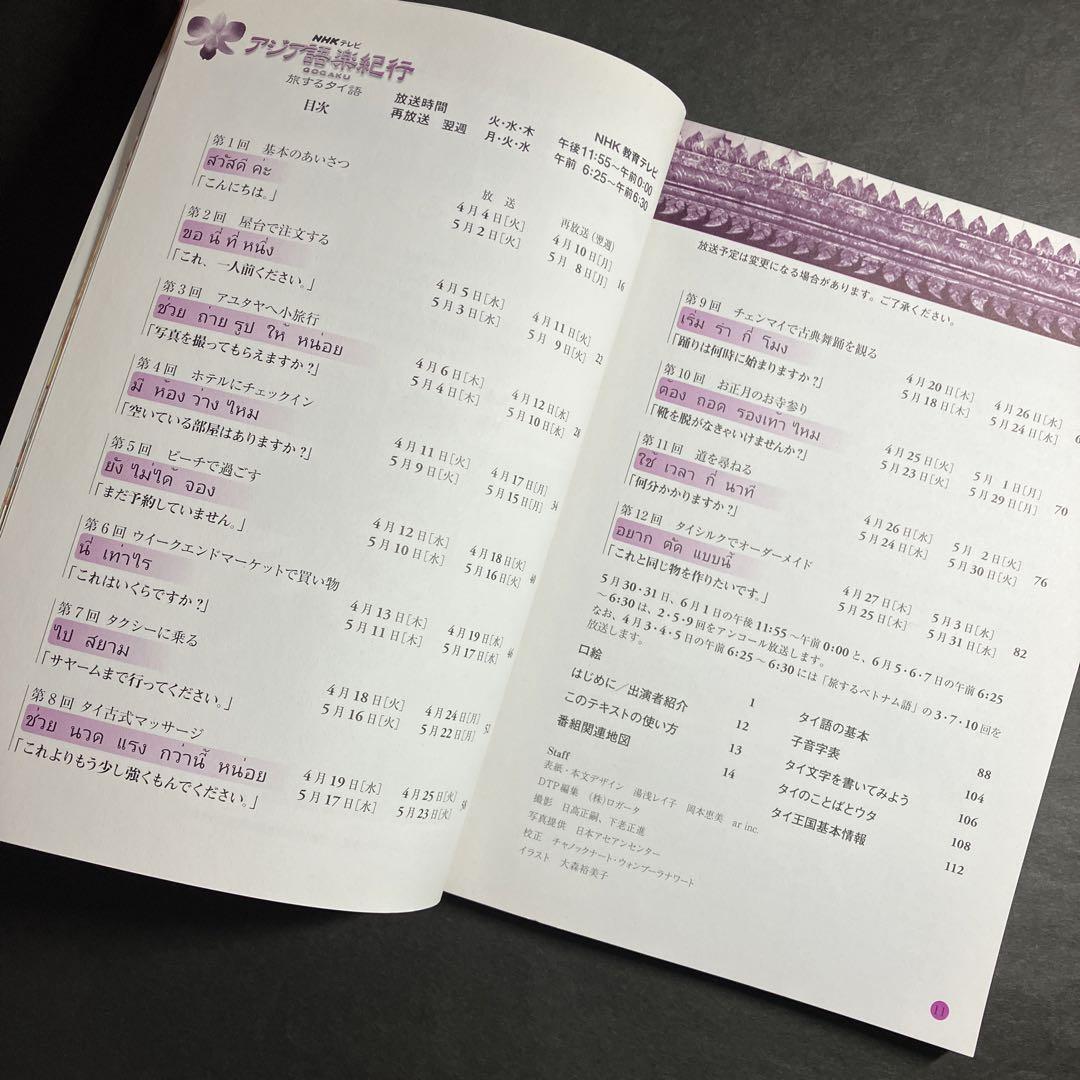 NHKテレビ
アジア語楽紀行
GOGAKU
旅するタイ語
目次
放送時間 火・水・木 午後11:55〜午前0:00
再放送 翌週 月・火・水 午前 6:25〜午前6:30
NHK教育テレビ
放送 再放送(翌週)
第1回 基本のあいさつ
สวัสดี ค่ะ
「こんにちは。」
4月4日[火] 4月10日[月]
5月2日[火] 5月 8日[月] 16
第2回 屋台で注文する
ขอ นี่ ที่ หนึ่ง
「これ、一人前ください。」
4月5日[水] 4月11日[火]
5月3日[水] 5月 9日[火] 22
第3回 アユタヤへ小旅行
ช่วย ถ่าย รูป ให้ หน่อย
「写真を撮ってもらえますか?」
4月6日[木] 4月12日[水]
5月4日[木] 5月10日[水] 28
第4回 ホテルにチェックイン
มี ห้อง ว่าง ไหม
「空いている部屋はありますか?」
4月11日[火] 4月17日[月]
5月9日[火] 5月15日[月] 34
第5回 ビーチで過ごす
ยัง ไม่ได้ จอง
「まだ予約していません。」
4月12日[水] 4月18日[火]
5月10日[水] 5月16日[火] 40
第6回 ウイークエンドマーケットで買い物
นี่ เท่าไร
「これはいくらですか?」
4月13日[木] 4月19日[水]
5月11日[木] 5月17日[水] 46
第7回 タクシーに乗る
ไป สยาม
「サヤームまで行ってください。」
4月18日[火] 4月24日[月]
5月16日[火] 5月22日[月] 52
第8回 タイ古式マッサージ
ช่วย นวด แรง กว่านี้ หน่อย
「これよりもう少し強くもんでください。」
4月19日[水] 4月25日[火]
5月17日[水] 5月23日[火] 58
放送予定は変更になる場合があります。ご了承ください。
第9回 チェンマイで古典舞踊を観る
เริ่ม รำ กี่ โมง
「踊りは何時に始まりますか?」
4月20日[木] 4月26日[水]
5月18日[木] 5月24日[水]
第10回 お正月のお寺参り
ต้อง ถอด รองเท้า ไหม
「靴を脱がなきゃいけませんか?」
4月25日[火] 5月 1日[月]
5月23日[火] 5月29日[月] 70
第11回 道を尋ねる
ใช้ เวลา กี่ นาที
「何分かかりますか?」
4月26日[水] 5月 2日[火]
5月24日[水] 5月30日[火] 76
第12回 タイシルクでオーダーメイド
อยาก ตัด แบบนี้
「これと同じ物を作りたいです。」
4月27日[木] 5月3日[水]
5月25日[木] 5月31日[水] 82
5月30・31日、6月1日の午後11:55〜午前0:00と、6月5・6・7日の午前6:25
〜6:30は、2・5・9回をアンコール放送します。
なお、4月3・4・5日の午前6:25〜6:30には「旅するベトナム語」の3・7・10回を
放送します。
口絵 1
はじめに/出演者紹介 12
このテキストの使い方 13
番組関連地図 14
タイ語の基本 88
子音字表 104
タイ文字を書いてみよう 106
タイのことばとウタ 108
タイ王国基本情報 112
Staff
表紙・本文デザイン 湯浅レイ子 岡本恵美 ar inc.
DTP編集 (株)ロガータ
撮影 日高正嗣、下老正進
写真提供 日本アセアンセンター
校正 チャノックナート・ウォンブーラナワート
イラスト 大森裕美子
11